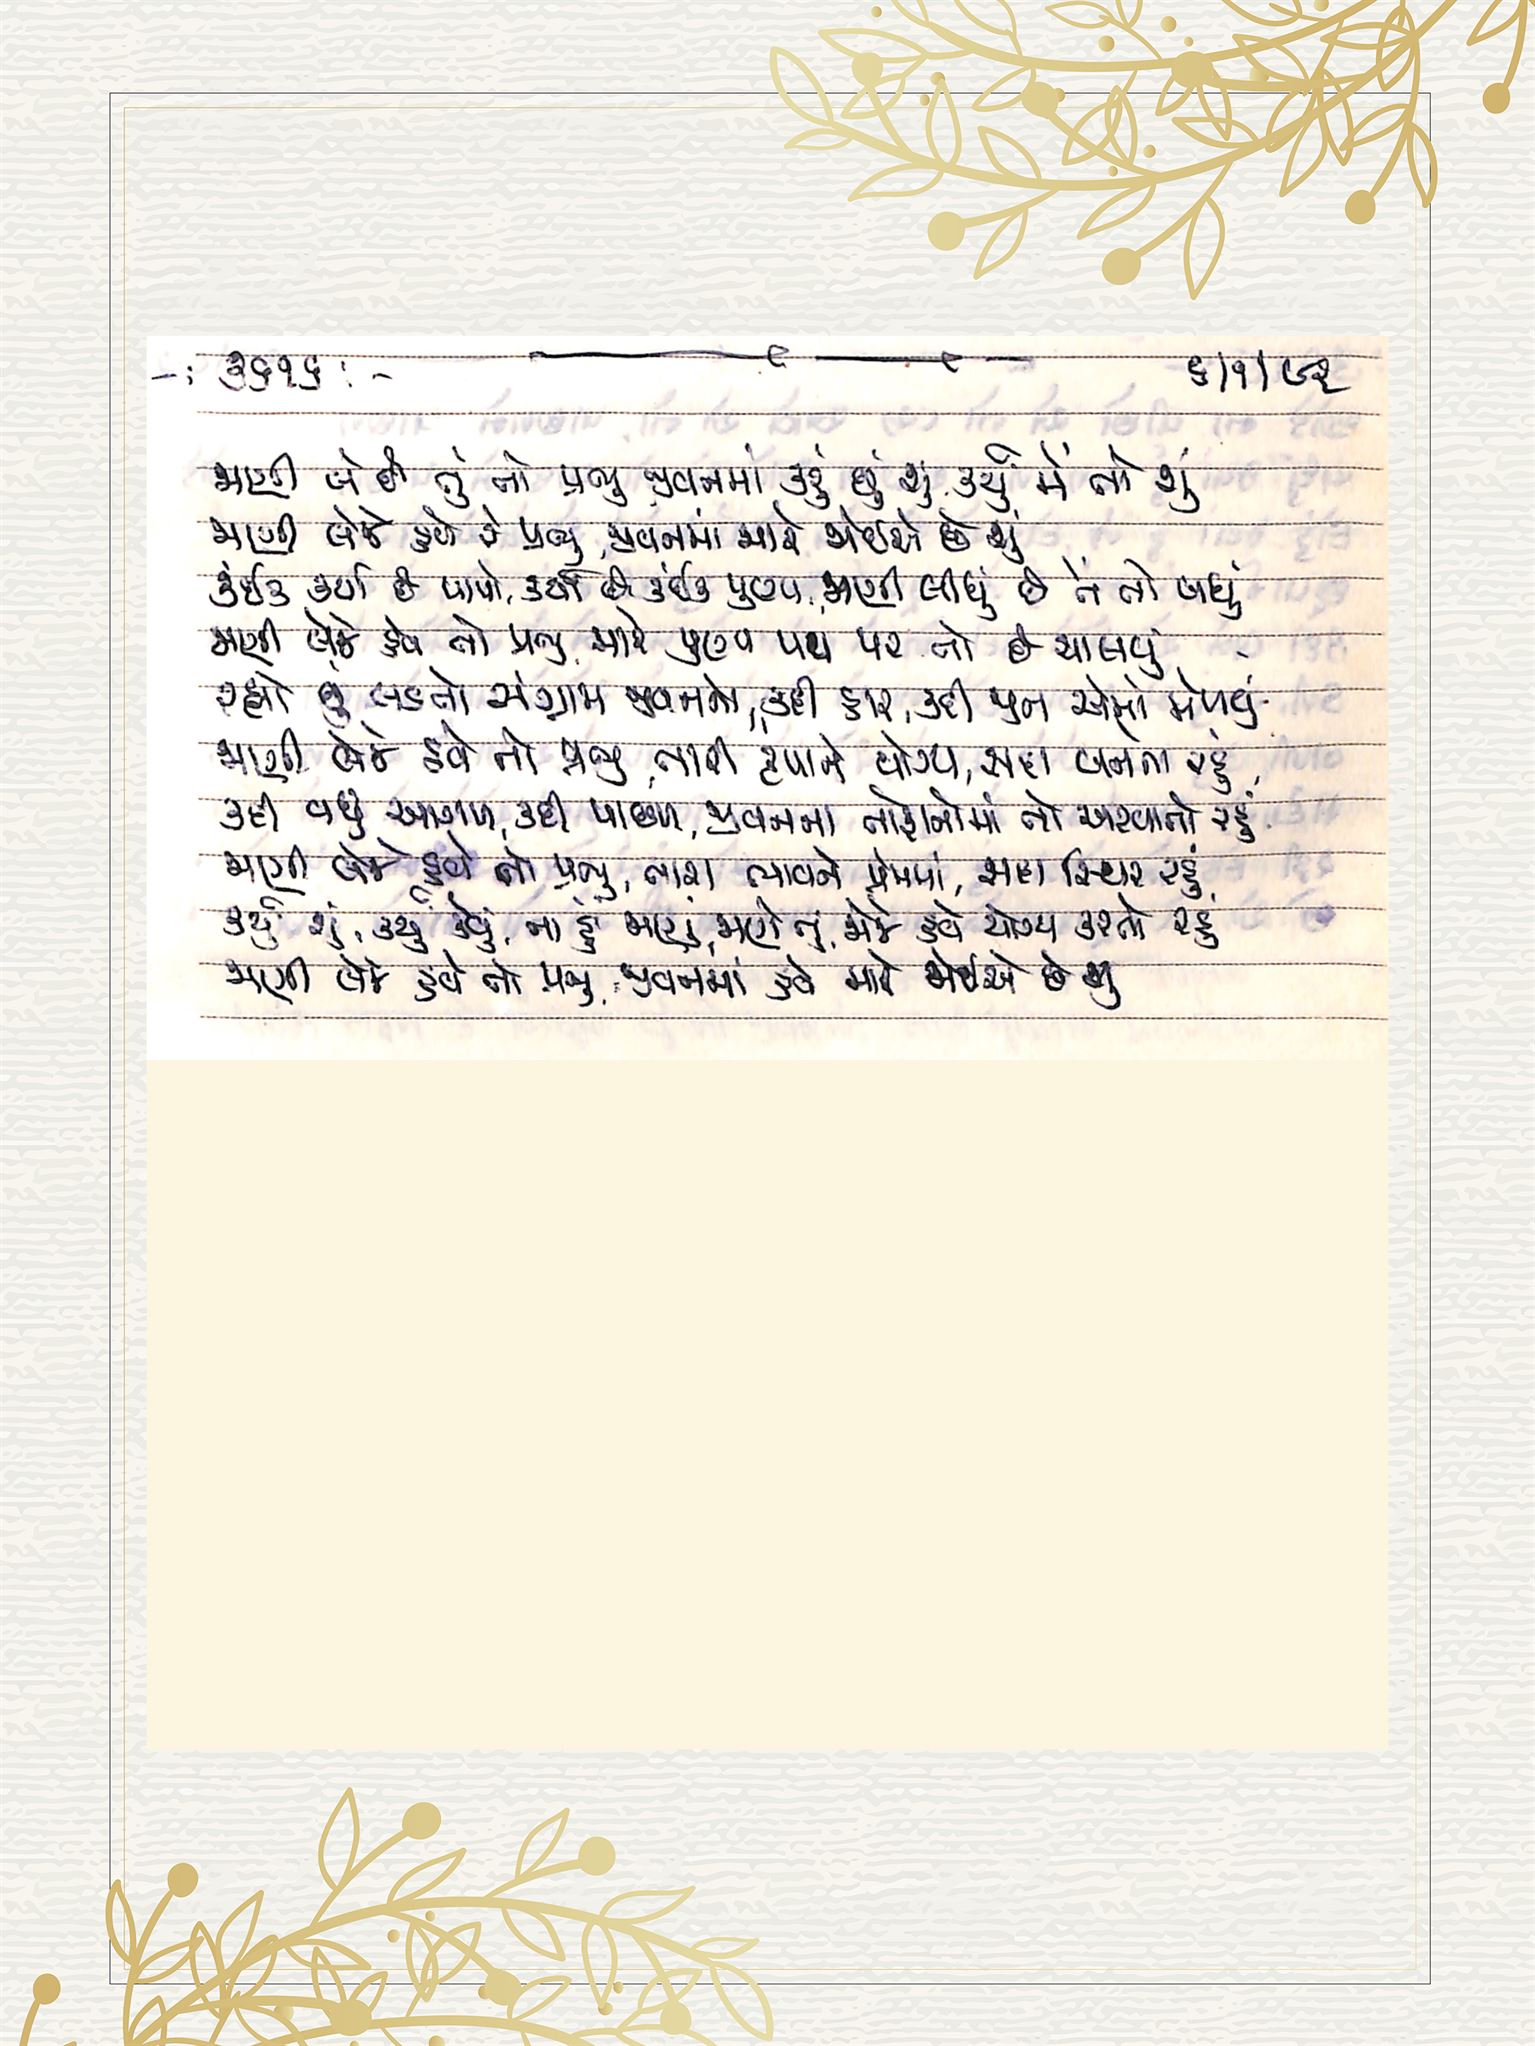 -: ૩૬૧૬ : -
૬/૧/૯૨
જાણી લે છે તું તો પ્રભુ જીવનમાં કરું છું શું કર્યું મેં તો શું
જાણી લેજે હવે રે પ્રભુ, જીવનમાં મારે જોઈએ છે શું
કંઈક કર્યા છે પાપો, કર્યા છે કંઈક પુણ્ય, જાણી લીધું છે તેં તો બધું
જાણી લેજે હવે તો પ્રભુ મારે પુણ્ય પથ પર તો છે ચાલવું
રહ્યો છું લડતો સંગ્રામ જીવનનો, કદી હાર, કદી જીત એમાં મેળવું
જાણી લેજે હવે તો પ્રભુ, તારી કૃપાને યોગ્ય, સદા બનતો રહું
કદી વધુ આગળ, કદી પાછળ, જીવનના તોફાનોમાં તો અટવાતો રહું
જાણી લેજે હવે તો પ્રભુ, તારા ભાવને પ્રેમમાં, સદા સ્થિર રહું
કર્યું શું, કર્યું કેવું, ના હું જાણું, જાણે તું, જોજે હવે યોગ્ય કરતો રહું
જાણી લેજે હવે તો પ્રભુ, જીવનમાં હવે મારે જોઈએ છે શું